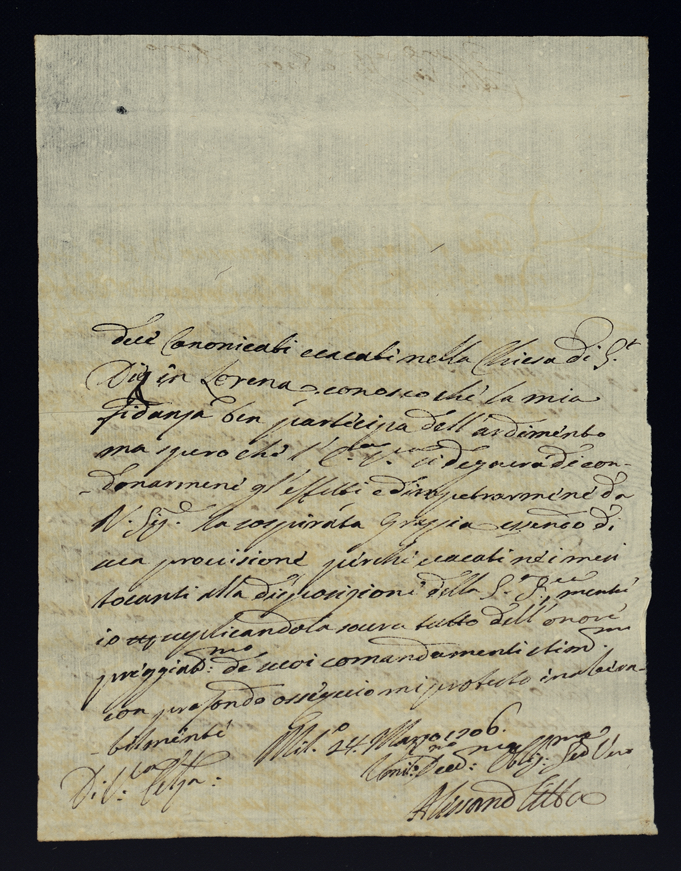 dete Canonicati vacati nella Chiesa di S.t
Die in Lorena, conosco che la mia
fidanza ben partecipa dell'ardimento
ma spero che l' si degnerà di con-
-donarmene gl'effetti e d'impetrarmene da
N. Sig.e la sospirata Grazia essendo di
sua provisione perche vacati nei mesi
tocanti alla disposizione della S. mente
io supplicandola sovra tutto dell'onore
preggiab.mo de suoi comandamenti
con profondo ossequio mi protesto inalterа-
-bilmente Mil.o 24. Marzo 1706.
Di V.
Umil. Obblig. Ser